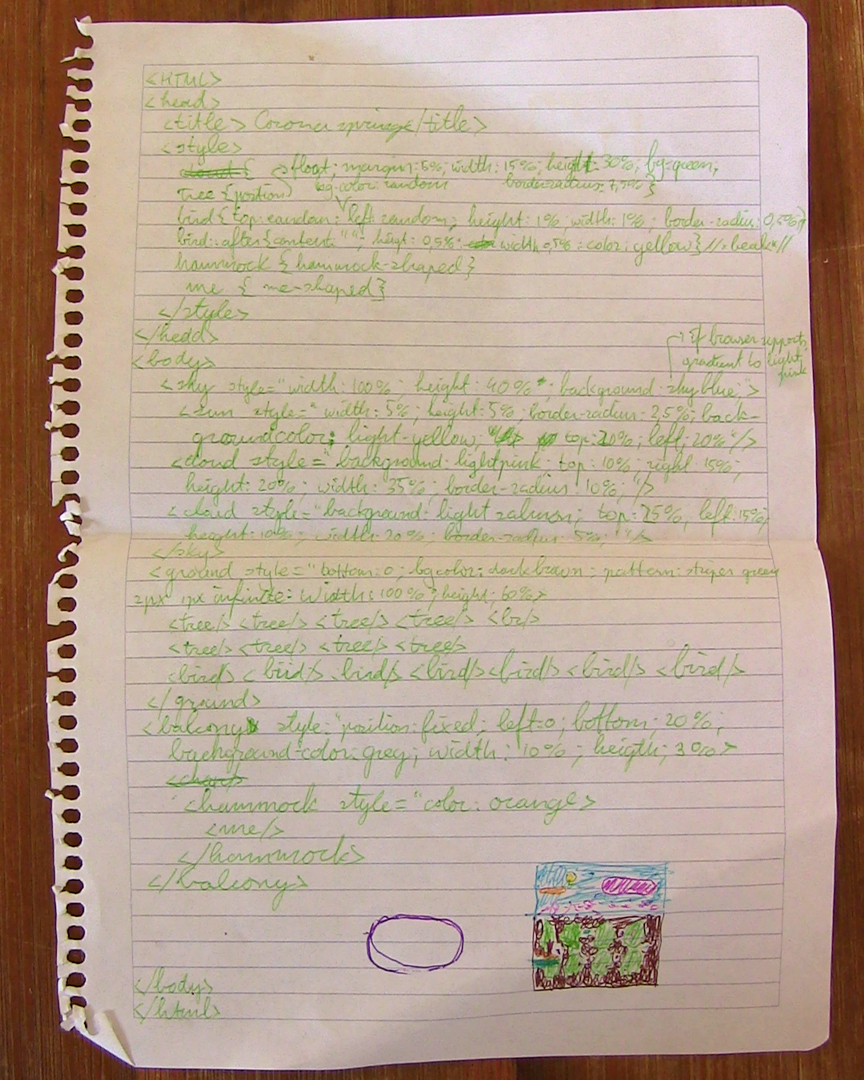 <HTML>
<head>
<title> Corona springs/title>
<style>
float; margin: 5%; width: 15%; height: 30%; bg=green;
tree {position} bg-color: random border-radius: 7,5% }
bird { top: random; left: random; height: 1%; width: 1%; border-radius: 0,5%}
bird:after{content: " "; heigt: 0,5%; width 0,5%: color: yellow} // beak //
hammock { hammock-shaped}
me { me-shaped}
</style>
</head>
if browser supports
gradient to light
pink
<body>
<sky style="width: 100%; height: 40%"; background: skyblue;">
<sun style=" width: 5%; height: 5%; border-radius: 2,5%; back-
groundcolor: light-yellow; top: 20%; left: 20%"/>
<cloud style=" background: lightpink; top: 10%; right 15%;
height: 20%; width: 35%; border-radius: 10%; "/>
<cloud style="background: light salmon; top: 25%, left: 15%;
height: 10%; width: 20%; border-radius: 5%; "/>
</sky>
<ground style=" bottom: 0; bgcolor: darkbrown; pattern: stripes green
2px 1px infinite: width: 100%; height: 60%>
<tree/> <tree/> <tree/> <tree/> <br/>
<tree/> <tree/> <tree/> <tree/>
<bird/> <bird/> <bird/> <bird/> <bird/> <bird/> <bird/>
</ground>
<balcony style="position: fixed; left=0; bottom: 20%;
background-color: grey; width: 10%; heigth; 30%>
<hammock style="color: orange>
<me/>
</hammock>
</balcony>
</body>
</html>